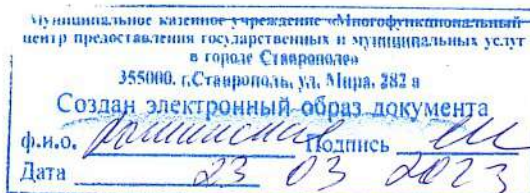 Муниципальное казенное учреждение «Многофункциональный
центр предоставления государственных и муниципальных услуг
в городе Ставрополе»
355000, г.Ставрополь, ул. Мира, 282 а
Создан электронный образ документа
ф.и.о. Подпись
Дата 23 03 2023